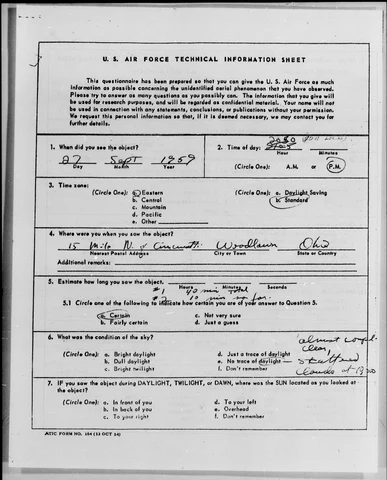 U. S. AIR FORCE TECHNICAL INFORMATION SHEET
This questionnaire has been prepared so that you can give the U. S. Air Force as much
information as possible concerning the unidentified aerial phenomenon that you have observed.
Please try to answer as many questions as you possibly can. The information that you give will
be used for research purposes, and will be regarded as confidential material. Your name will not
be used in connection with any statements, conclusions, or publications without your permission.
We request this personal information so that, if it is deemed necessary, we may contact you for
further details.
1. When did you see the object?
27 Sept 1959
Day Month Year
2. Time of day: 2030
Hour Minutes
(Circle One): A.M. or P.M.
3. Time zone:
(Circle One): a. Eastern
b. Central
c. Mountain
d. Pacific
e. Other
(Circle One): a. Daylight Saving
b. Standard
4. Where were you when you saw the object?
15 Mile N. of Cincinnati Woodlawn Ohio
Nearest Postal Address City or Town State or Country
Additional remarks:
5. Estimate how long you saw the object.
Hours Minutes Seconds
#1 40 min total
#2 10 min so far
5.1 Circle one of the following to indicate how certain you are of your answer to Question 5.
a. Certain c. Not very sure
b. Fairly certain d. Just a guess
6. What was the condition of the sky?
(Circle One): a. Bright daylight d. Just a trace of daylight
b. Dull daylight e. No trace of daylight
c. Bright twilight f. Don't remember
almost
clear
scattered
clouds at
7. IF you saw the object during DAYLIGHT, TWILIGHT, or DAWN, where was the SUN located as you looked at
the object?
(Circle One): a. In front of you d. To your left
b. In back of you e. Overhead
c. To your right f. Don't remember
ATIC FORM NO. 164 (13 OCT 54)